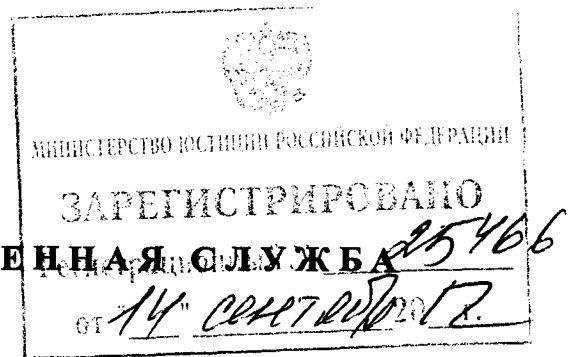 МИНИСТЕРСТВО ЮСТИЦИИ РОССИЙСКОЙ ФЕДЕРАЦИИ
ЗАРЕГИСТРИРОВАНО
ЕННАЯ СЛУЖБА
25466
от "14" сентября 2012.